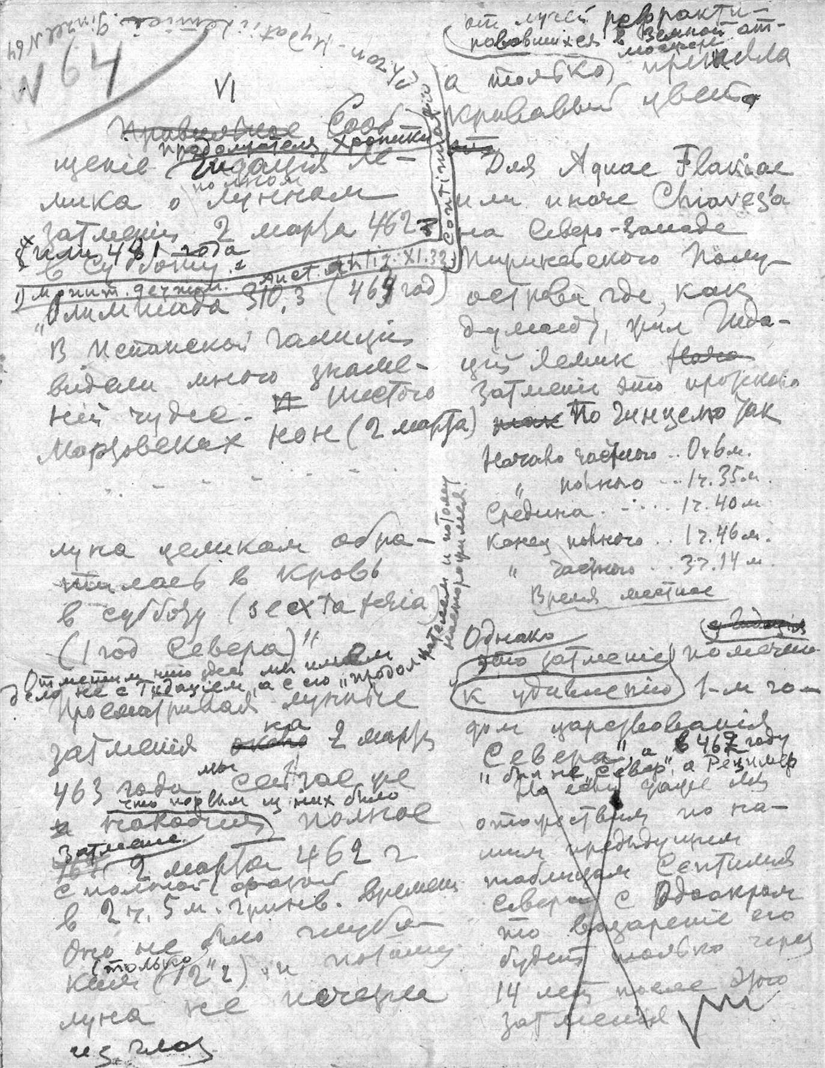 N 64
VI
Правильное Сооб-
продолжателя Хроники
щеніе Гидація Ле-
мика о лунном
затменіи 2 марта 462
или 481 года
в Субботу
"Олимпиада 310,3 (464 год)
В Испанской Галиціи
видели много знаме-
ній чудес. шестого
Мартовских нон (2 марта)
луна целиком обра-
тилась в кровь
в субботу (sexta feria)
(1 год Севера)"
Отметим что здесь мы имеем
дело не с Гидаціем, а с его "продол-
жателем и потому
насторожимся
Просматривая лунные
затменія на 2 марта
463 года мы сейчас же
что первым из них было
находим полное
Затменіе
2 марта 462 г
с полной фазой
в 2 ч. 5 м. гринв. времени
Оно не было глубо-
кая (только 12"2) и потому
луна не исчезла
из глаз
от лучей рефракти-
ровавшихся в земной ат-
мосфере
а только приняла
кровавый цвет.
Для Aquae Flaviae
или иначе Chiavez'a
на Северо-Западе
Пиринейского Полу-
острова, где, как
думают, жил Гида-
цій Лемик
Затменіе это произошло
по Гинцелю так
Начало частного .. 0 ч 6 м.
" полного ... 1 ч. 35 м.
Средина ..... 1 ч. 40 м
Конец полного .. 1 ч. 46 м.
" частного .. 3 ч. 14 м.
Время местное
Однако
это затменіе помечено
к удивленію 1-м го-
дом царствованія
Севера", а в 462 году
"был не "Север", а Рецимер
Но если даже мы
отожествим по на-
шим предыдущим
таблицам Септимія
Севера с Одоакром
то воцареніе его
будет только через
14 лет после этого
затменія